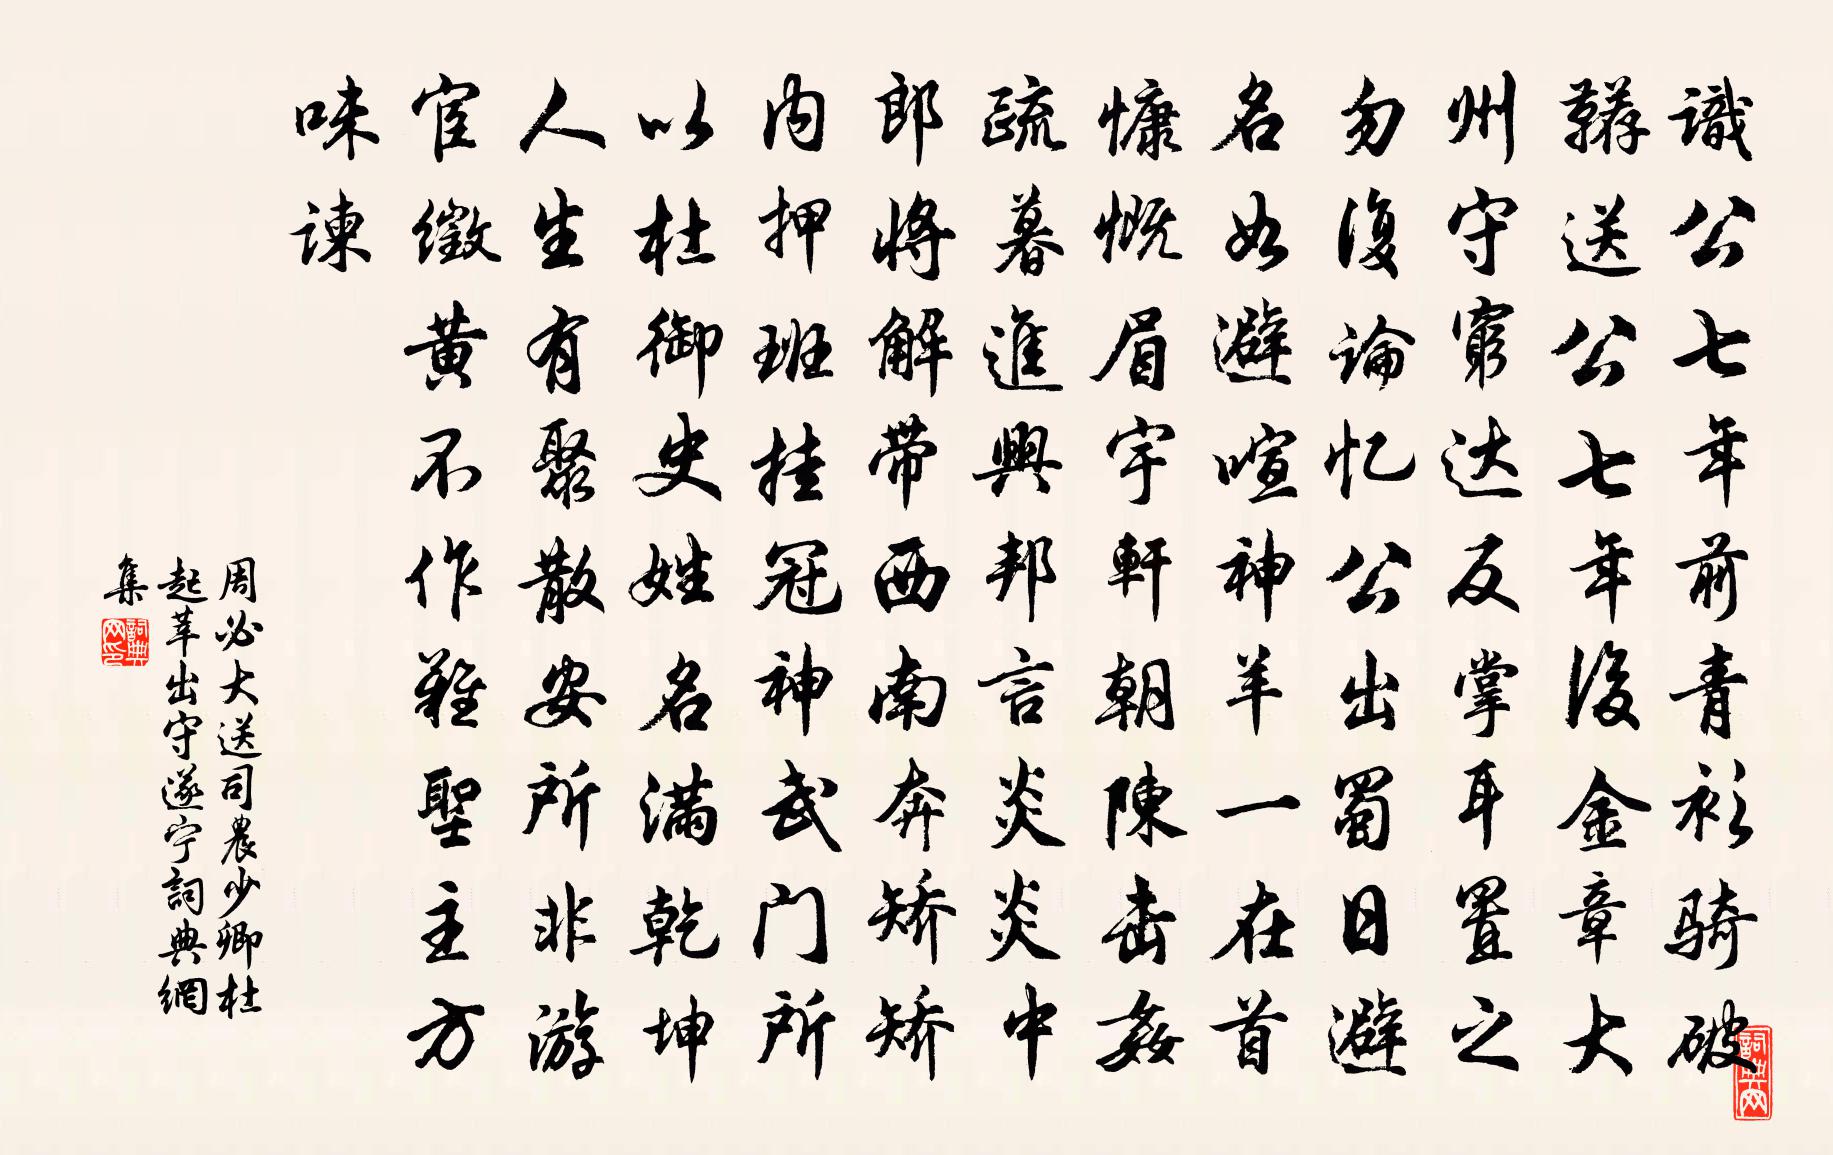 識公七年前青衫骑破
鞯送公七年後金章大
州守窮达反掌耳置之
勿復論忆公出蜀日避
名如避喧神羊一在首
慷慨眉宇軒朝陳击姦
疏暮進興邦言炎炎中
郎將解带西南奔矫矫
内押班挂冠神武门所
以杜御史姓名满乾坤
人生有聚散安所非游
宦徵黄不作難聖主方
味諫
周必大送司農少卿杜
起莘出守遂宁詞典網
集
詞典网印
詞典网